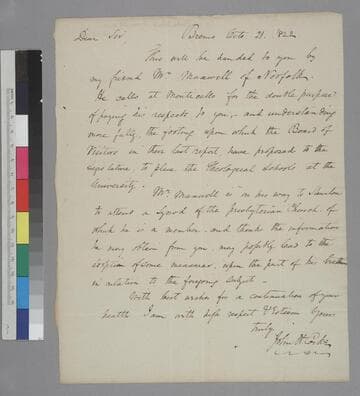 Dear Sir Bremo Octo. 21. 1822
This will be handed to you by
my friend Mr. Maxwell of Norfolk.
He calls at Monticello for the double purpose
of paying his respects to you, and understanding
more fully, the footing upon which the Board of
Visitors in their last report have proposed to the
legislature to place the Theological Schools at the
University.
Mr. Maxwell is on his way to Staunton
to attend a Synod of the Presbyterian Church of
which he is a member and thinks the information
he may obtain from you may possibly lead to the
adoption of some measures, upon the part of his brethren
in relation to the foregoing subject.
With best wishes for a continuation of your
health I am with high respect & Esteem Yours
truly.
John H. Cocke